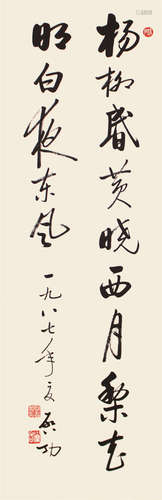 杨柳昏黄晓西月梨花
明白夜东风
一九八七年夏
启功